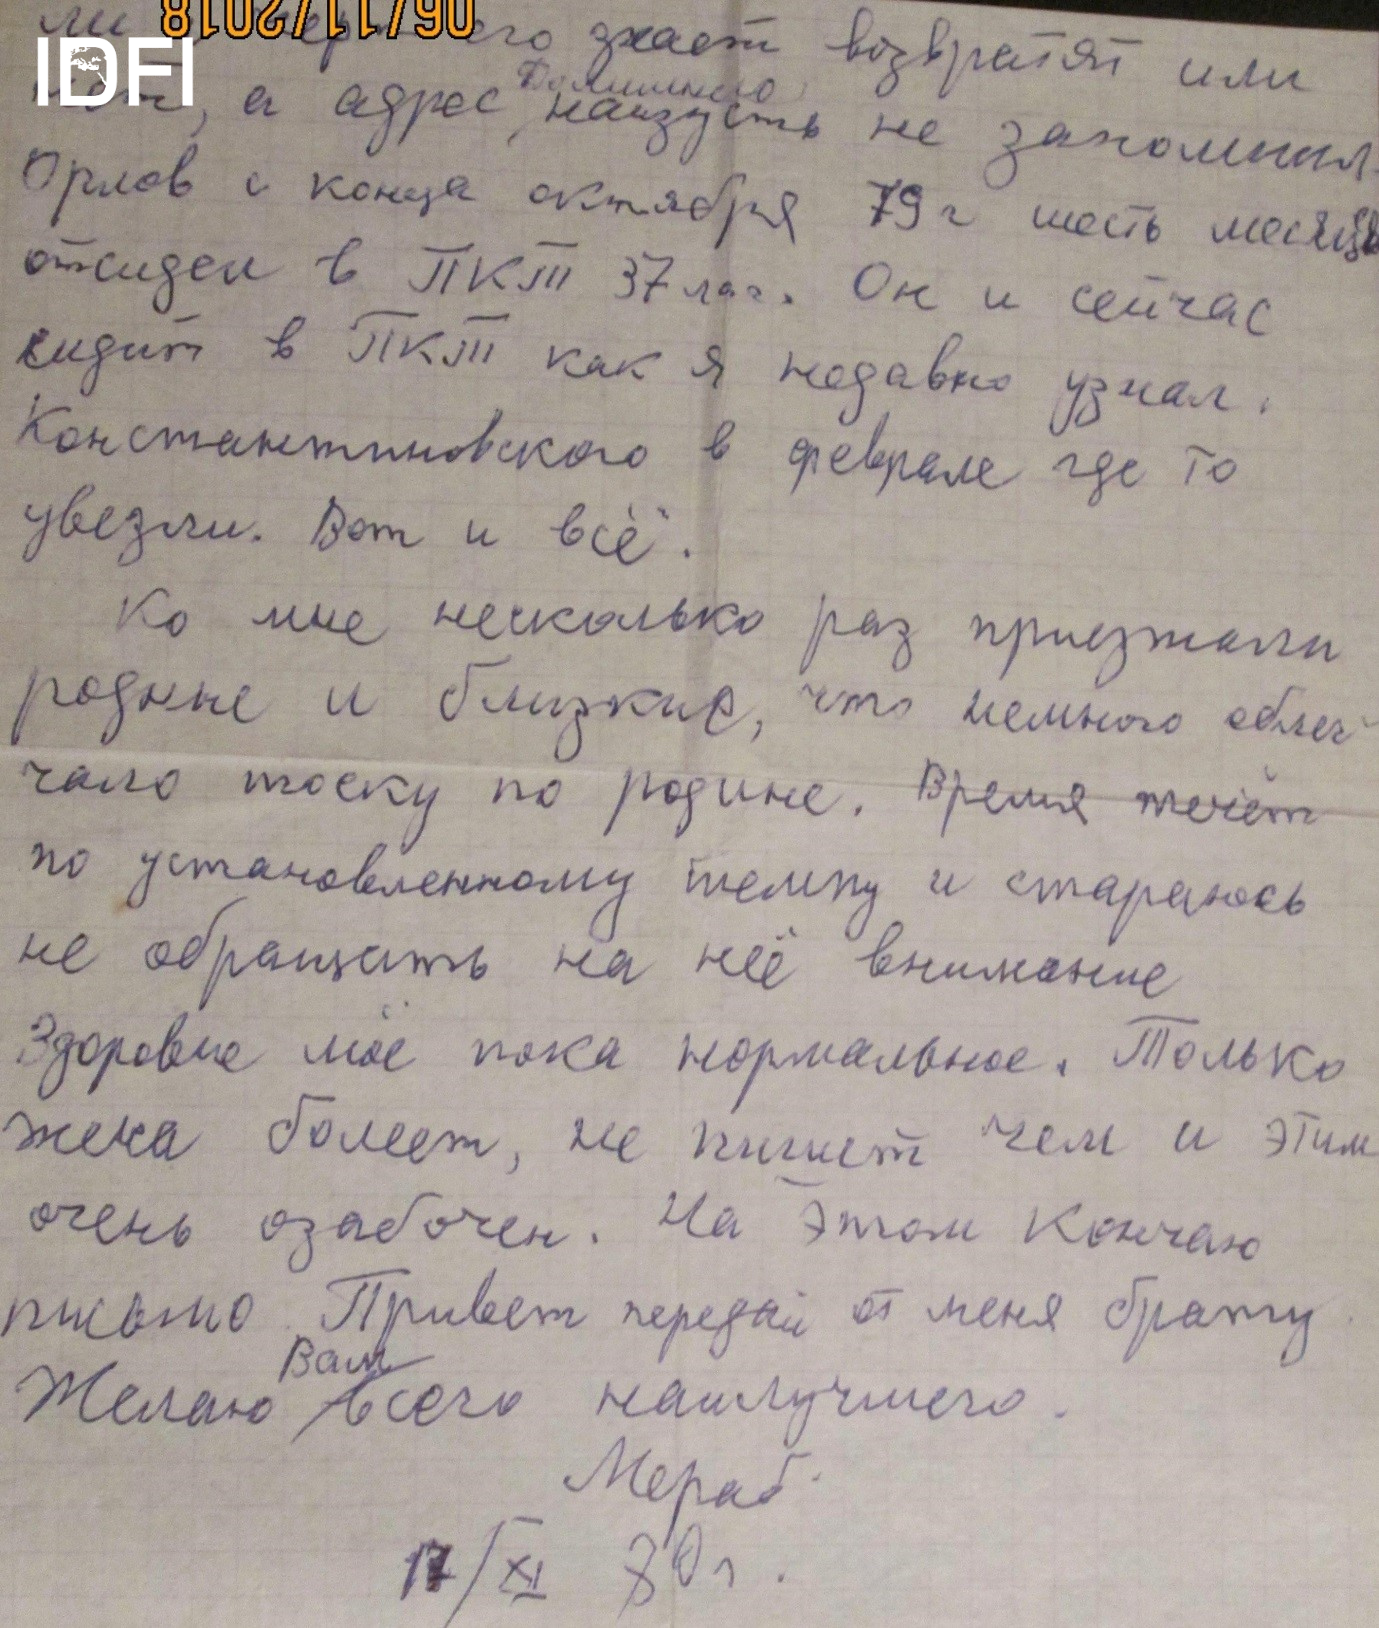 06/11/2018
IDFI
ли его знает возвратят или
нет, а адрес наизусть не запомнил.
Орлов с конца октября 79 г шесть месяцев
отсидел в ПКТ 37 лаг. Он и сейчас
сидит в ПКТ как я недавно узнал.
Константиновского в феврале где то
увезли. Вот и всё.
Ко мне несколько раз приезжали
родные и близкие, что немного облег-
чало тоску по родине. Время течёт
по установленному темпу и стараюсь
не обращать на неё внимание
Здоровие моё пока нормальное. Только
жена болеет, не пишет чем и этим
очень озабочен. На этом кончаю
письмо. Привет передай от меня брату
Желаю Вам всего наилучшего.
Мераб.
17/XI 80 г.